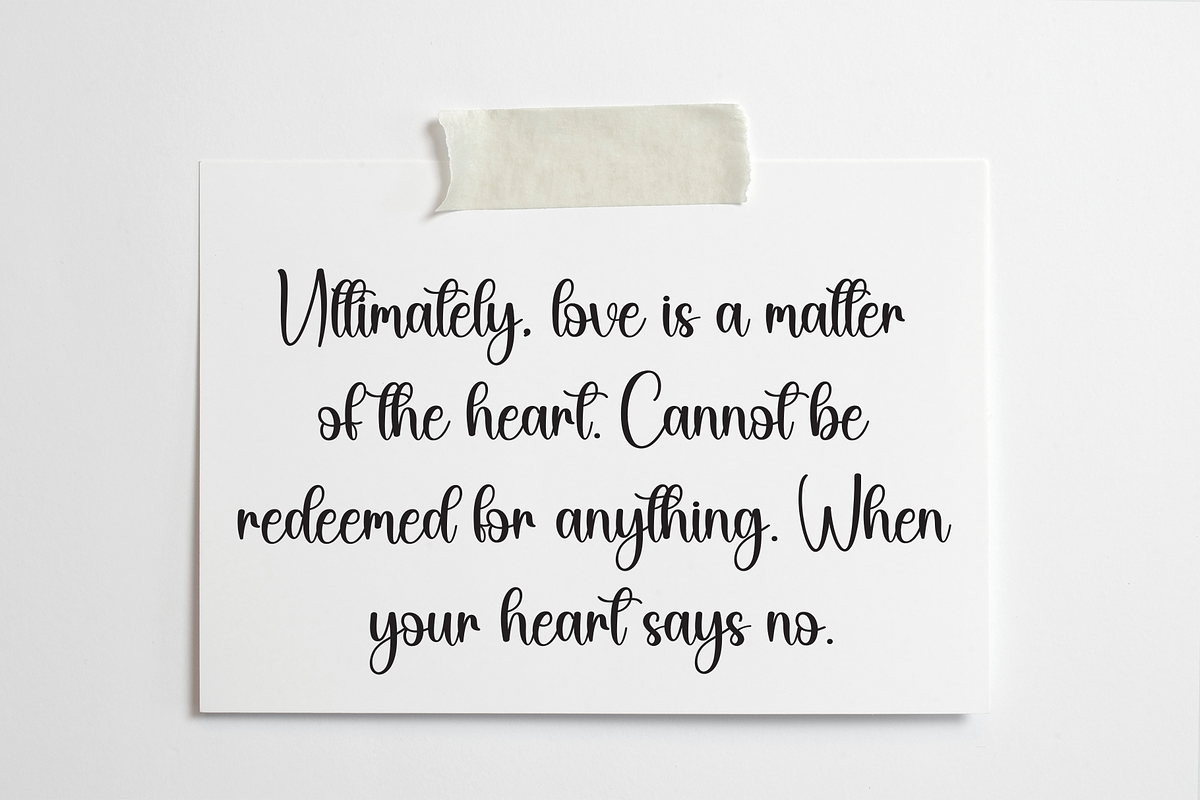 Ultimately, love is a matter
of the heart. Cannot be
redeemed for anything. When
your heart says no.